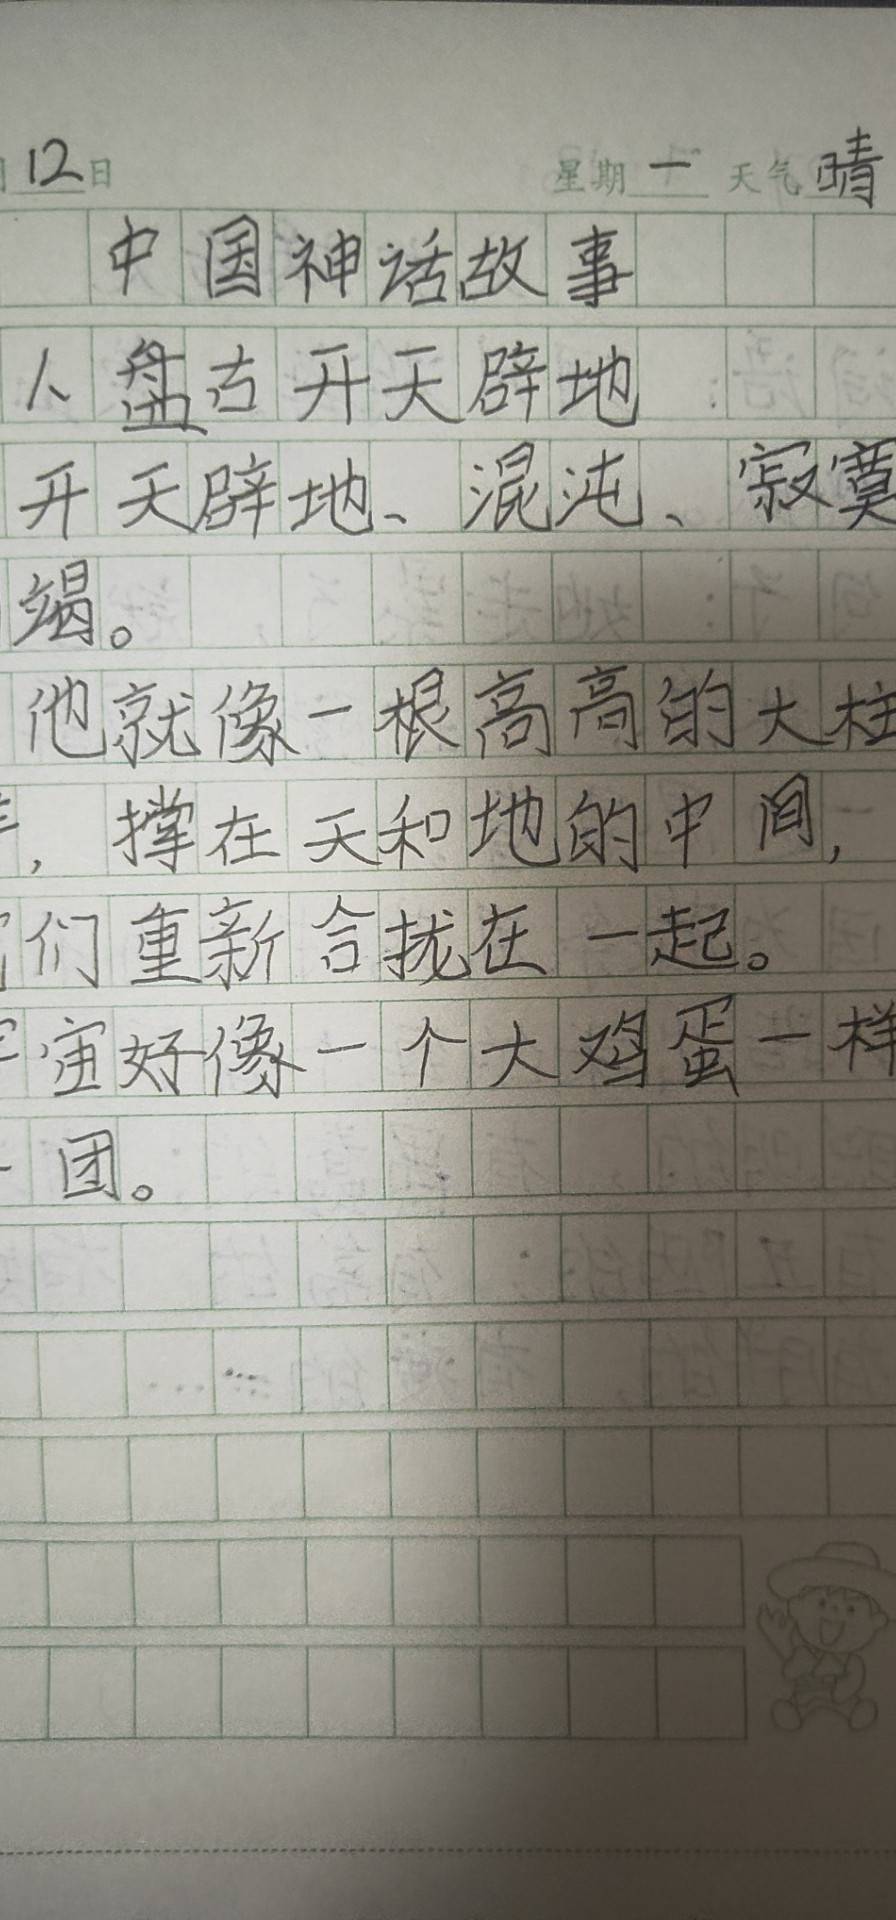 12日 星期一 天气晴
中国神话故事
人盘古开天辟地
开天辟地、混沌、寂寞
竭。
他就像一根高高的大柱
，撑在天和地的中间，
们重新合拢在一起。
宙好像一个大鸡蛋一样
团。